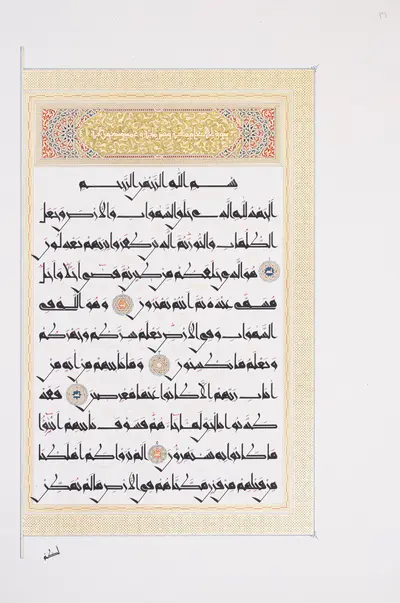 بسم الله الرحمن الرحيم
الحمد لله الذي خلق السموات والأرض وجعل
الظلمات والنور ثم الذين كفروا بربهم يعدلون
هو الذي خلقكم من طين ثم قضى أجلا وأجل
مسمى عنده ثم أنتم تمترون وهو الله في
السموات وفي الأرض يعلم سركم وجهركم
ويعلم ما تكسبون وما تأتيهم من آية من
آيات ربهم إلا كانوا عنها معرضين فقد
كذبوا بالحق لما جاءهم فسوف يأتيهم أنبؤا
ما كانوا به يستهزءون ألم يروا كم أهلكنا
من قبلهم من قرن مكناهم في الأرض ما لم نمكن